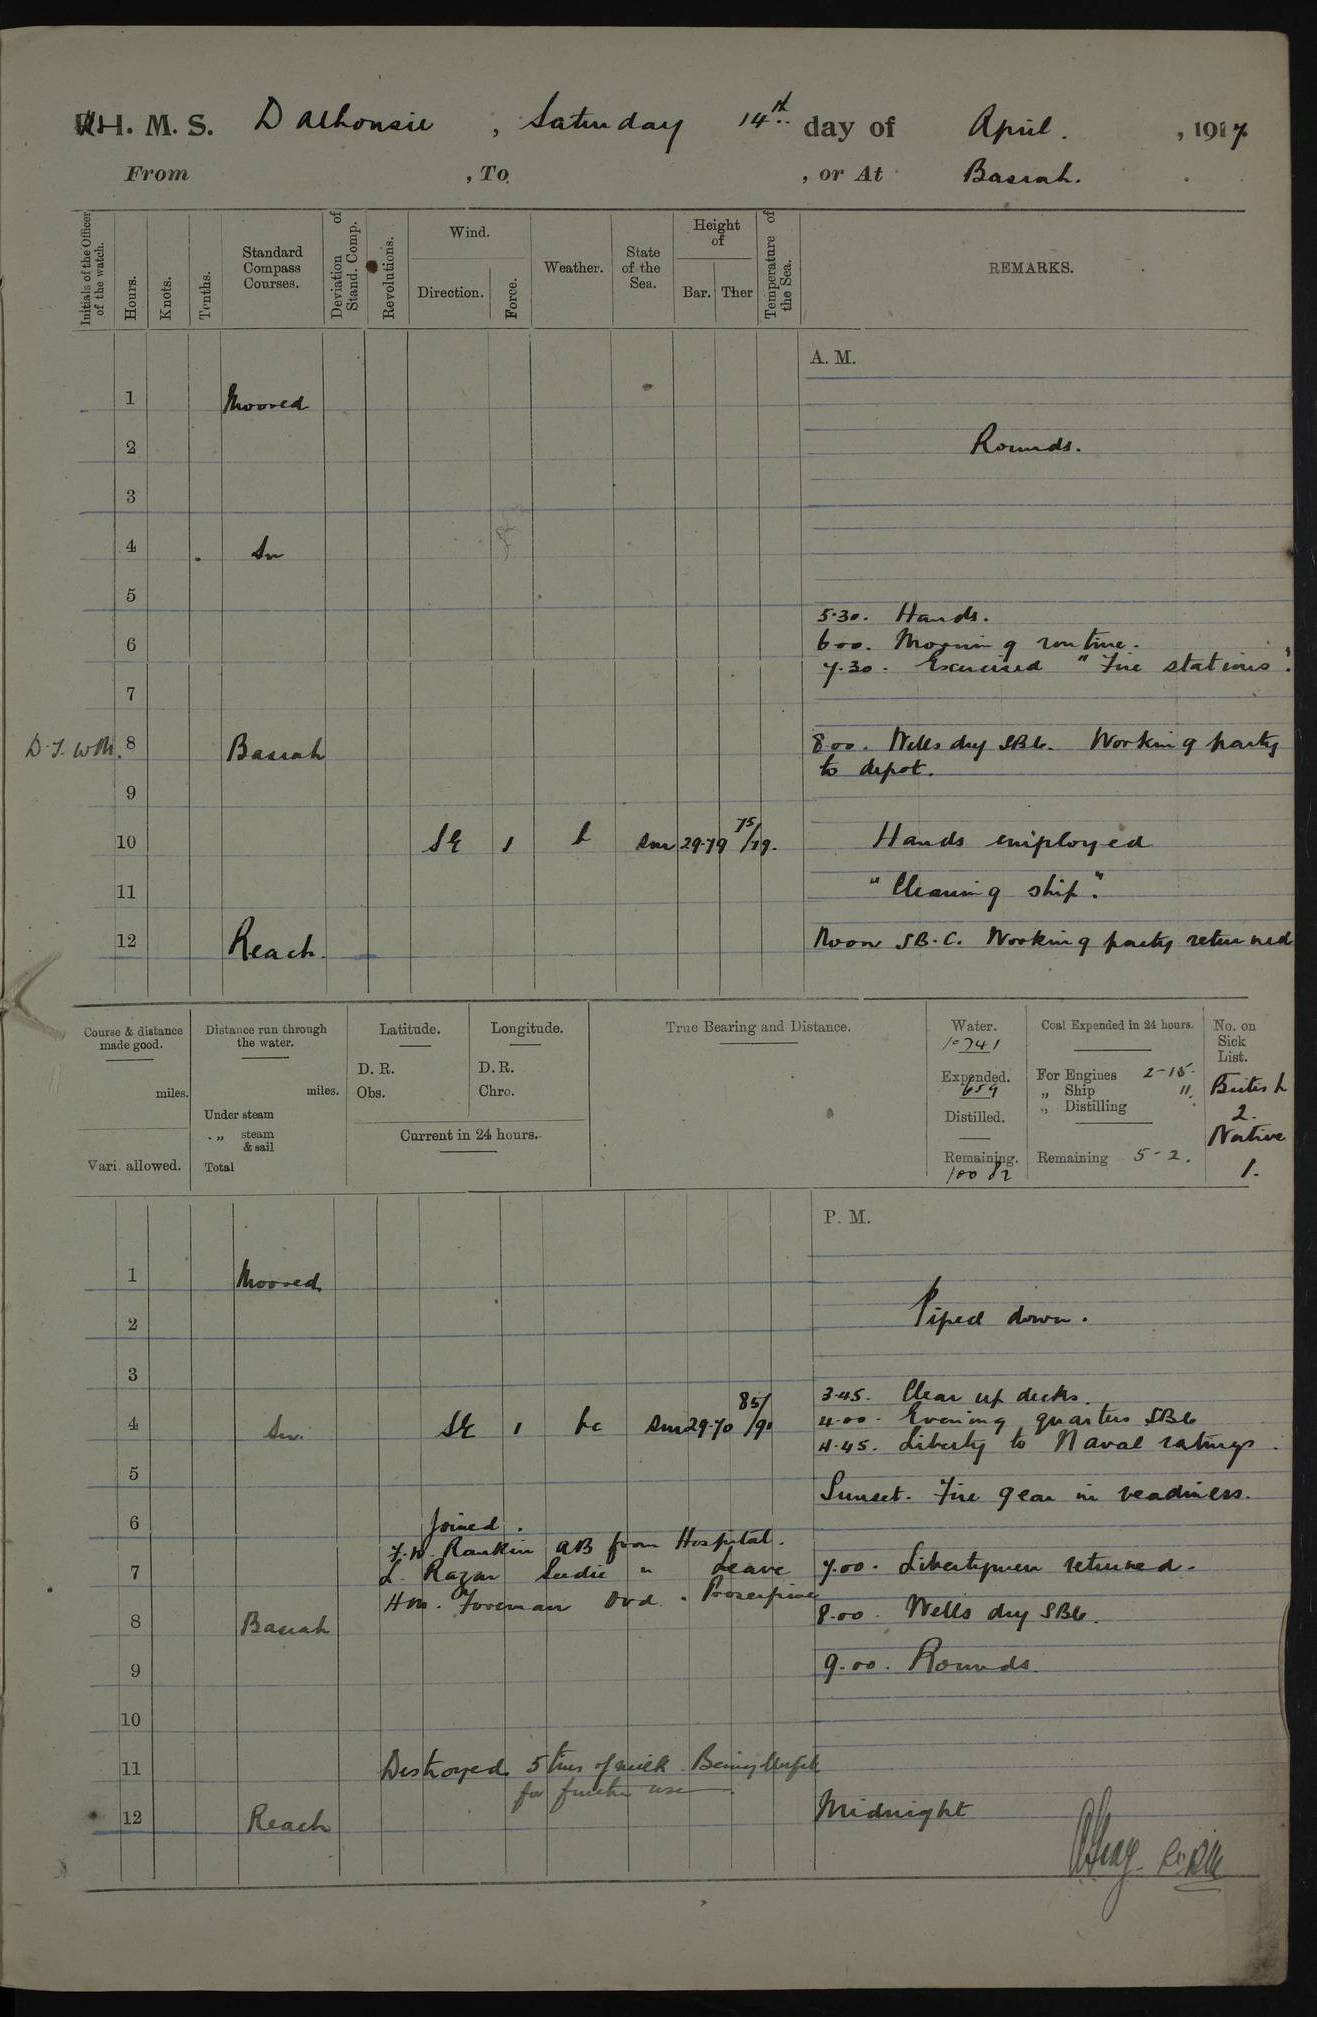 H. M. S. Dalhousie , Saturday 14th day of April. , 1917
From , To , or At Basrah.
Initials of the Officer of the watch.
Hours.
Knots.
Tenths.
Standard Compass Courses.
Deviation of Stand. Comp.
Revolutions.
Wind.
Direction.
Force.
Weather.
State of the Sea.
Height of
Bar. Ther
Temperature of the Sea.
REMARKS.
A. M.
1 Moored
2 Rounds.
3
4 in
5
5.30. Hands.
6 6.00. Morning routine.
7.30. Exercised "Fire stations".
7
8 Basrah 8.00. Wells dry SB6. Working party
to depot.
9
10 SE 1 b sm 29.79 75/79. Hands employed
11 "Cleaning ship".
12 Reach. Noon SB.C. Working party returned
Course & distance made good.
miles.
Vari. allowed.
Distance run through the water.
miles.
Under steam
„ steam & sail
Total
Latitude.
D. R.
Obs.
Longitude.
D. R.
Chro.
Current in 24 hours.
True Bearing and Distance.
Water.
10741
Expended.
659
Distilled.
Remaining.
10082
Coal Expended in 24 hours.
For Engines 2-15.
„ Ship "
„ Distilling
Remaining 5-2.
No. on Sick List.
British
2.
Native
1.
P. M.
1 Moored
2 Piped down.
3
3.45. Clear up decks.
4 in SE 1 bc sm 29.70 85/90 4.00. Evening quarters SB6
4.45. Liberty to Naval ratings.
5
Sunset. Fire gear in readiness.
6 Joined.
F.W. Rankin AB from Hospital.
7 L. Razar Seedie " Leave 7.00. Libertymen returned.
Hm. Foreman Ord. " Proserpine
8 Basrah 8.00. Wells dry SB6.
9 9.00. Rounds.
10
11 Destroyed 5 tins of milk. Being Unfit
for further use
12 Reach Midnight